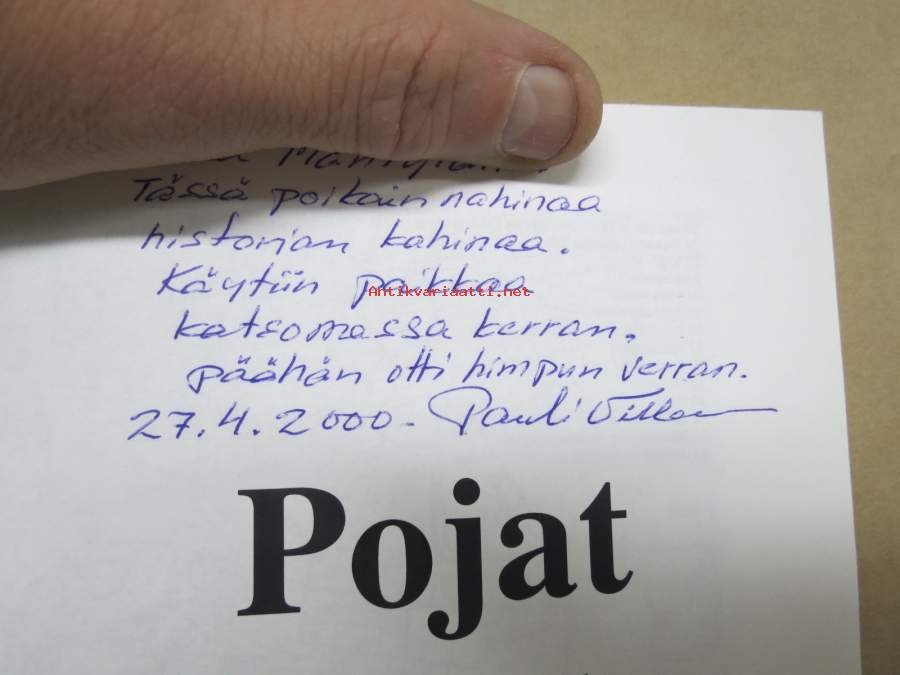 Tässä poikain nahinaa
historian kahinaa.
Käytiin paikkaa
Antikvariaatti.net
katsomassa kerran.
päähän otti himpun verran.
27.4.2000. Pauli
Pojat